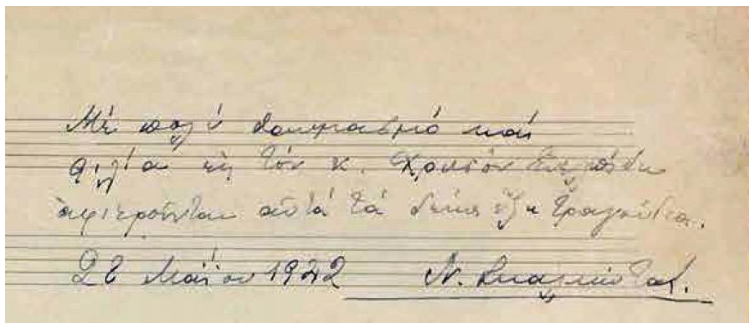 Μὲ πολὺ θαυμασμὸ καὶ
φιλία εἰς τὸν κ. Χρυσὸν Εὐελπίδη
ἀφιεροῦνται αὐτὰ τὰ δέκα ἕξη τραγούδια.
28 Μαΐου 1942 Ν. Σκαλκώτας.